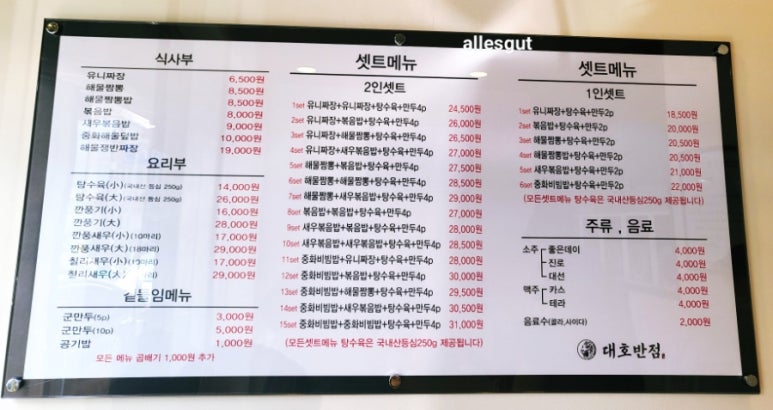 allesgut
식사부
유니짜장 6,500원
해물짬뽕 8,500원
해물짬뽕밥 8,500원
볶음밥 8,000원
새우볶음밥 9,000원
중화해물덮밥 10,000원
해물쟁반짜장 19,000원
요리부
탕수육(小)(국내산 등심 250g) 14,000원
탕수육(大)(국내산 등심 250g) 26,000원
깐풍기(小) 16,000원
깐풍기(大) 28,000원
깐풍새우(小)(10마리) 17,000원
깐풍새우(大)(18마리) 29,000원
칠리새우(小)(10마리) 17,000원
칠리새우(大) 29,000원
곁들임메뉴
군만두(5p) 3,000원
군만두(10p) 5,000원
공기밥 1,000원
모든 메뉴 곱배기 1,000원 추가
셋트메뉴
2인셋트
1set 유니짜장+유니짜장+탕수육+만두4p 24,500원
2set 유니짜장+볶음밥+탕수육+만두4p 26,000원
3set 유니짜장+해물짬뽕+탕수육+만두4p 26,500원
4set 유니짜장+새우볶음밥+탕수육+만두4p 27,000원
5set 해물짬뽕+볶음밥+탕수육+만두4p 27,500원
6set 해물짬뽕+해물짬뽕+탕수육+만두4p 28,500원
7set 해물짬뽕+새우볶음밥+탕수육+만두4p 29,000원
8set 볶음밥+볶음밥+탕수육+만두4p 27,000원
9set 새우볶음밥+볶음밥+탕수육+만두4p 28,000원
10set 새우볶음밥+새우볶음밥+탕수육+만두4p 28,500원
11set 중화비빔밥+유니짜장+탕수육+만두4p 28,000원
12set 중화비빔밥+볶음밥+탕수육+만두4p 30,000원
13set 중화비빔밥+해물짬뽕+탕수육+만두4p 29,500원
14set 중화비빔밥+새우볶음밥+탕수육+만두4p 30,500원
15set 중화비빔밥+중화비빔밥+탕수육+만두4p 31,000원
(모든셋트메뉴 탕수육은 국내산등심250g 제공됩니다)
셋트메뉴
1인셋트
1set 유니짜장+탕수육+만두2p 18,500원
2set 볶음밥+탕수육+만두2p 20,000원
3set 해물짬뽕+탕수육+만두2p 20,500원
4set 해물짬뽕밥+탕수육+만두2p 20,500원
5set 새우볶음밥+탕수육+만두2p 21,000원
6set 중화비빔밥+탕수육+만두2p 22,000원
(모든셋트메뉴 탕수육은 국내산등심250g 제공됩니다)
주류 , 음료
소주 좋은데이 4,000원
진로 4,000원
대선 4,000원
맥주 카스 4,000원
테라 4,000원
음료수(콜라,사이다) 2,000원
대호반점